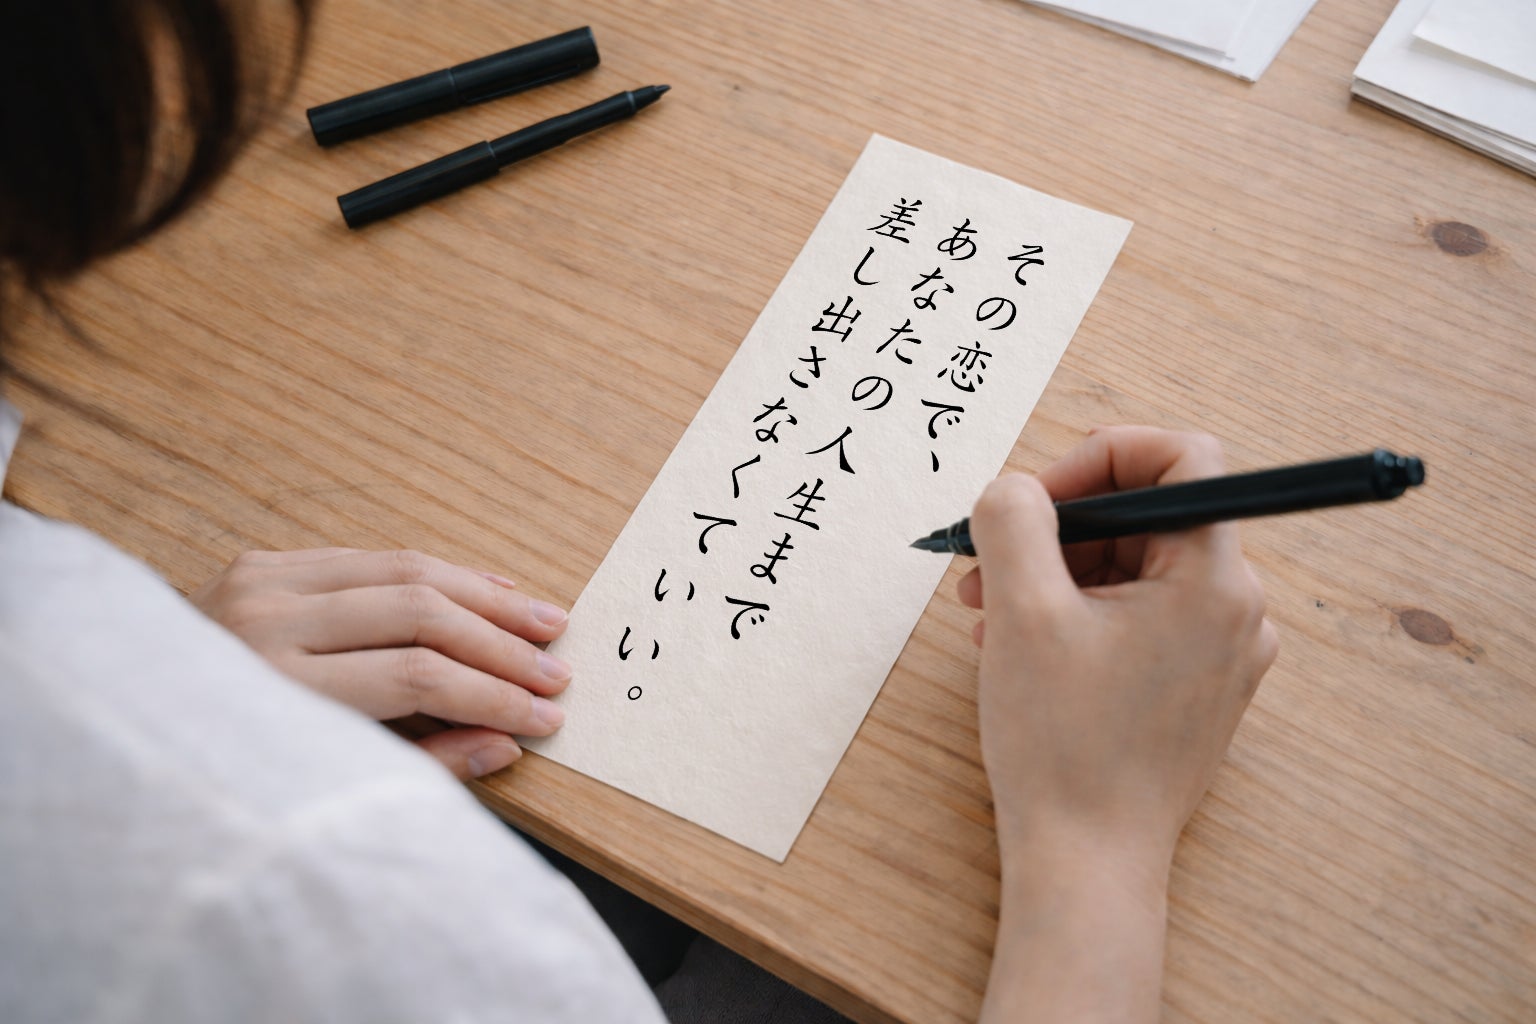 その恋で、
あなたの人生まで
差し出さなくていい。